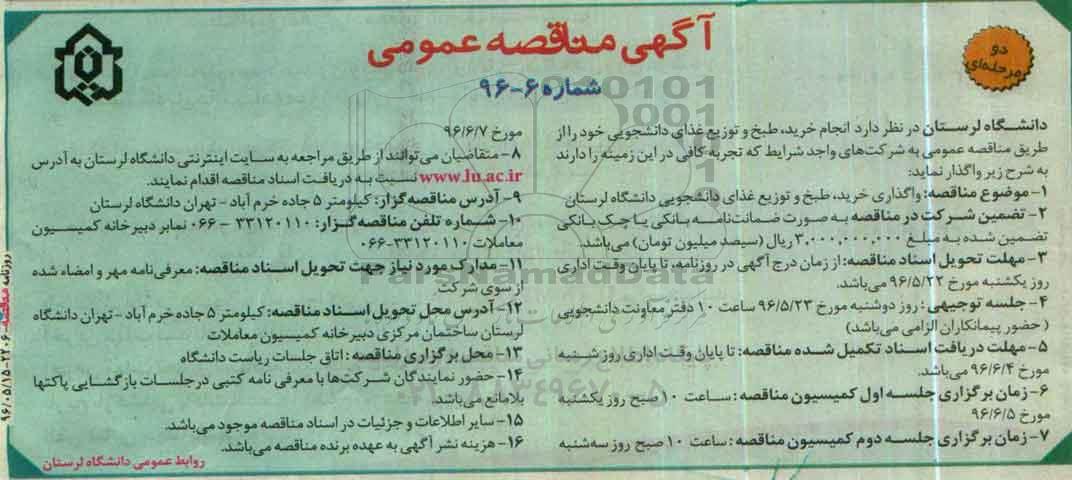 آگهی مناقصه عمومی
شماره ۶-۹۶
دو
مرحله‌ای
دانشگاه لرستان در نظر دارد انجام خرید، طبخ و توزیع غذای دانشجویی خود را از
طریق مناقصه عمومی به شرکت‌های واجد شرایط که تجربه کافی در این زمینه را دارند
به شرح زیر واگذار نماید:
۱- موضوع مناقصه: واگذاری خرید، طبخ و توزیع غذای دانشجویی دانشگاه لرستان
۲- تضمین شرکت در مناقصه به صورت ضمانت‌نامه بانکی یا چک بانکی
تضمین شده به مبلغ ۳،۰۰۰،۰۰۰،۰۰۰ ریال (سیصد میلیون تومان) می‌باشد.
۳- مهلت تحویل اسناد مناقصه: از زمان درج آگهی در روزنامه، تا پایان وقت اداری
روز یکشنبه مورخ ۹۶/۵/۲۲ می‌باشد.
۴- جلسه توجیهی: روز دوشنبه مورخ ۹۶/۵/۲۳ ساعت ۱۰ دفتر معاونت دانشجویی
(حضور پیمانکاران الزامی می‌باشد)
۵- مهلت دریافت اسناد تکمیل شده مناقصه: تا پایان وقت اداری روز شنبه
مورخ ۹۶/۶/۴ می‌باشد.
۶- زمان برگزاری جلسه اول کمیسیون مناقصه: ساعت ۱۰ صبح روز یکشنبه
مورخ ۹۶/۶/۵
۷- زمان برگزاری جلسه دوم کمیسیون مناقصه: ساعت ۱۰ صبح روز سه‌شنبه
مورخ ۹۶/۶/۷
۸- متقاضیان می‌توانند از طریق مراجعه به سایت اینترنتی دانشگاه لرستان به آدرس
www.lu.ac.ir نسبت به دریافت اسناد مناقصه اقدام نمایند.
۹- آدرس مناقصه‌گزار: کیلومتر ۵ جاده خرم آباد - تهران دانشگاه لرستان
۱۰- شماره تلفن مناقصه گزار: ۳۳۱۲۰۱۱۰ - ۰۶۶ نمابر دبیرخانه کمیسیون
معاملات ۳۳۱۲۰۱۱۰-۰۶۶
۱۱- مدارک مورد نیاز جهت تحویل اسناد مناقصه: معرفی‌نامه مهر و امضاء شده
از سوی شرکت
۱۲- آدرس محل تحویل اسناد مناقصه: کیلومتر ۵ جاده خرم آباد - تهران دانشگاه
لرستان ساختمان مرکزی دبیرخانه کمیسیون معاملات
۱۳- محل برگزاری مناقصه: اتاق جلسات ریاست دانشگاه
۱۴- حضور نمایندگان شرکت‌ها با معرفی نامه کتبی در جلسات بازگشایی پاکتها
بلامانع می‌باشد.
۱۵- سایر اطلاعات و جزئیات در اسناد مناقصه موجود می‌باشد.
۱۶- هزینه نشر آگهی به عهده برنده مناقصه می‌باشد.
روابط عمومی دانشگاه لرستان
روزنامه مناقصه-۲۲۰۶-۹۶/۰۵/۱۵
ParsNamadData